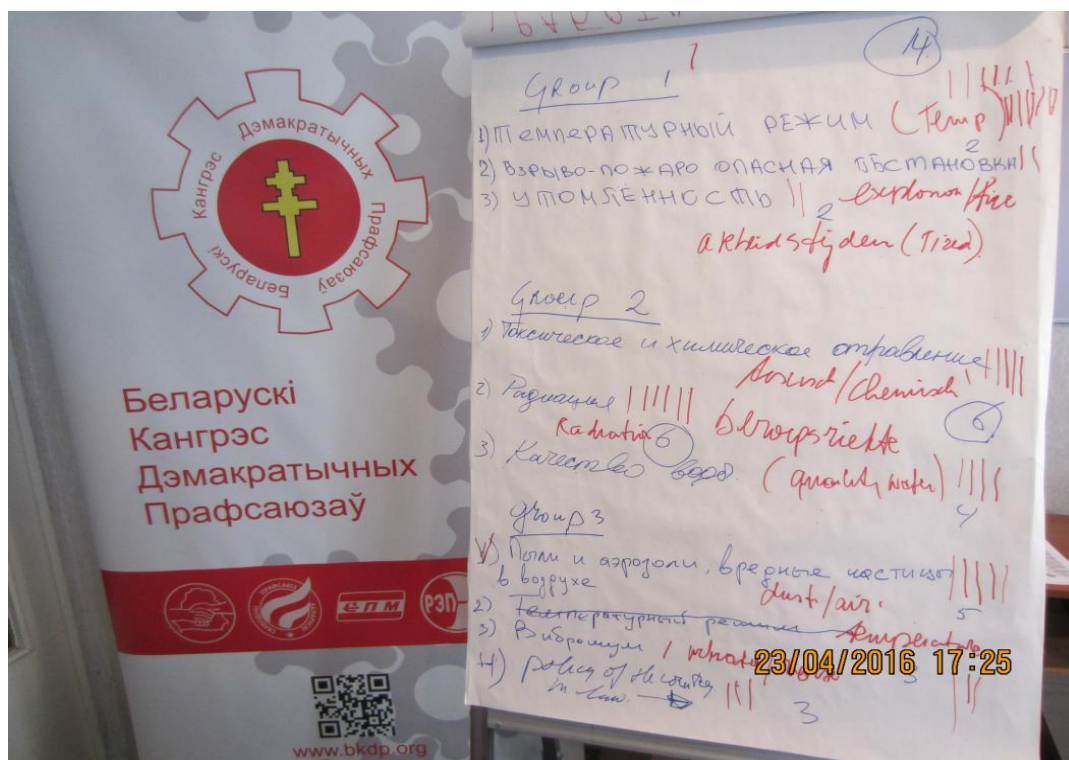 Беларускі Кангрэс Дэмакратычных Прафсаюзаў
Беларускі
Кангрэс
Дэмакратычных
Прафсаюзаў
СПМ
РЭП
www.bkdp.org
14
Group 1
1) ТЕМПЕРАТУРНЫЙ РЕЖИМ (Temp)
2
2) ВЗРЫВО-ПОЖАРО ОПАСНАЯ ОБСТАНОВКА
3) УТОМЛЁННОСТЬ 2 explosion/fire
(Tired)
Group 2
1) Токсическое и химическое отравление
/Chemisch
6
2) Радиация
6
3) Качество воды. (quality water)
4
group 3
1) Пыли и аэрозоли, вредные частицы
в воздухе
dust/air.
5
2) Температурный режим temperature
3)
4) policy of the country
in law.
3
23/04/2016 17:25